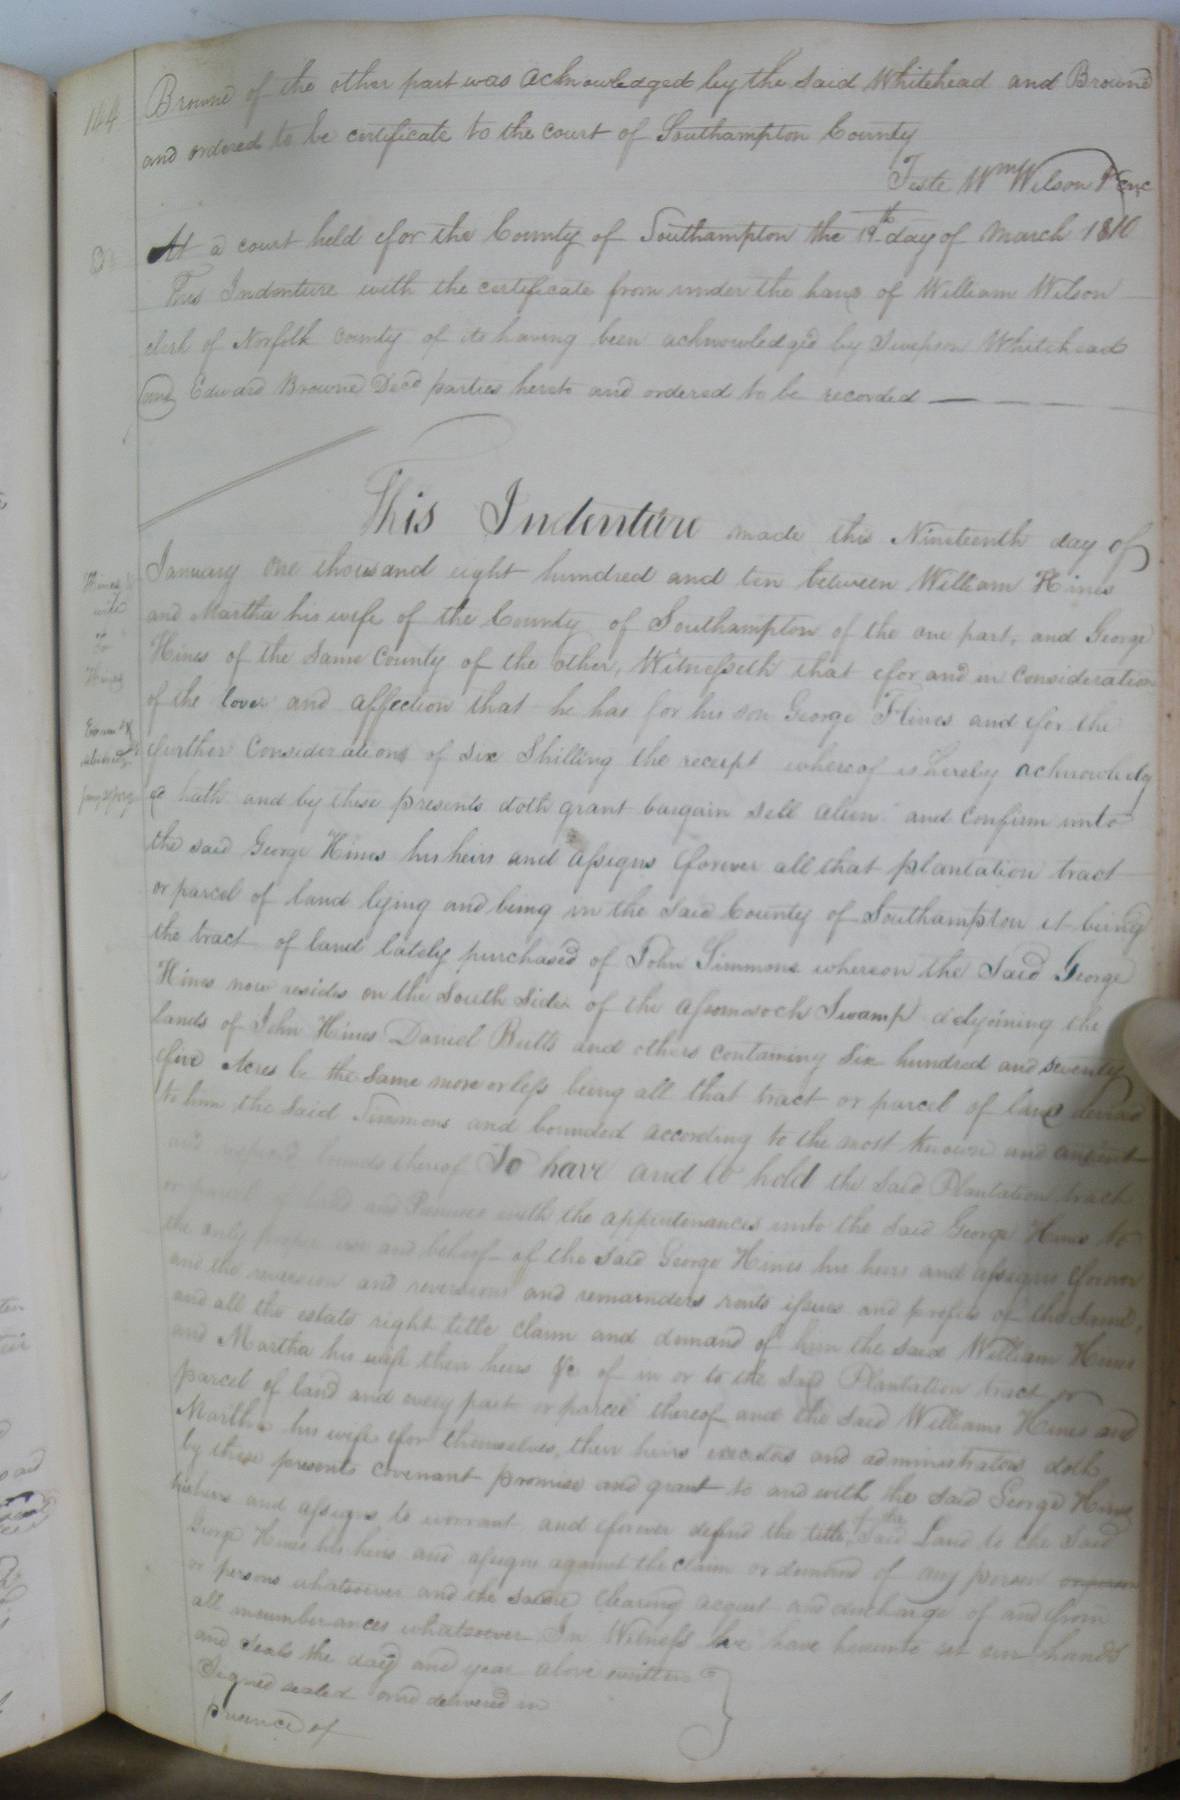 144
Browne of the other part was acknowledged by the said Whitehead and Browne
and ordered to be certificate to the court of Southampton County
Teste Wm Wilson
At a court held for the County of Southampton the 19th day of March 1810
This Indenture with the certificate from under the hand of William Wilson
clerk of Norfolk County of its having been acknowledged by Swepson Whitehead
and Edward Browne parties hereto and ordered to be recorded
This Indenture made this Nineteenth day of
January one thousand eight hundred and ten between William Hines
Hines &
wife
to
Hines
and Martha his wife of the County of Southampton of the one part, and George
Hines of the same County of the other, Witnesseth that for and in consideration
of the love and affection that he has for his son George Hines and for the
further Considerations of six Shilling the receipt whereof is hereby acknowledg
Exam'd &
delivered
ed hath and by these presents doth grant bargain sell alien and confirm unto
the said George Hines his heirs and assigns forever all that plantation tract
or parcel of land lying and being in the said County of Southampton it being
the tract of land lately purchased of John Simmons whereon the said George
Hines now resides on the South Side of the Assomosock Swamp adjoining the
lands of John Hines Daniel Butts and others containing six hundred and seventy
five Acres be the same more or less being all that tract or parcel of land devised
to him the said Simmons and bounded according to the most known and antient
and reputed bounds thereof To have and to hold the said Plantation tract
or parcel of land and Premises with the appurtenances unto the said George Hines to
the only proper use and behoof of the said George Hines his heirs and assigns forever
and the reversion and reversions and remainders rents issues and profits of the Land,
and all the estate right title claim and demand of him the said William Hines
and Martha his wife their heirs &c of in or to the said Plantation tract or
parcel of land and every part or parcel thereof and the said Williams Hines and
Martha his wife for themselves, their heirs executors and administrators doth
by these presents covenant promise and grant to and with the said George Hines
his heirs and assigns to warrant and forever defend the title of the said Land to the said
George Hines his heirs and assigns against the claim or demand of any person or person
or persons whatsoever and the same clearing acquit and discharge of and from
all incumberances whatsoever In Witness we have hereunto set our hands
and seals the day and year above written
Signed sealed and delivered in
presence of